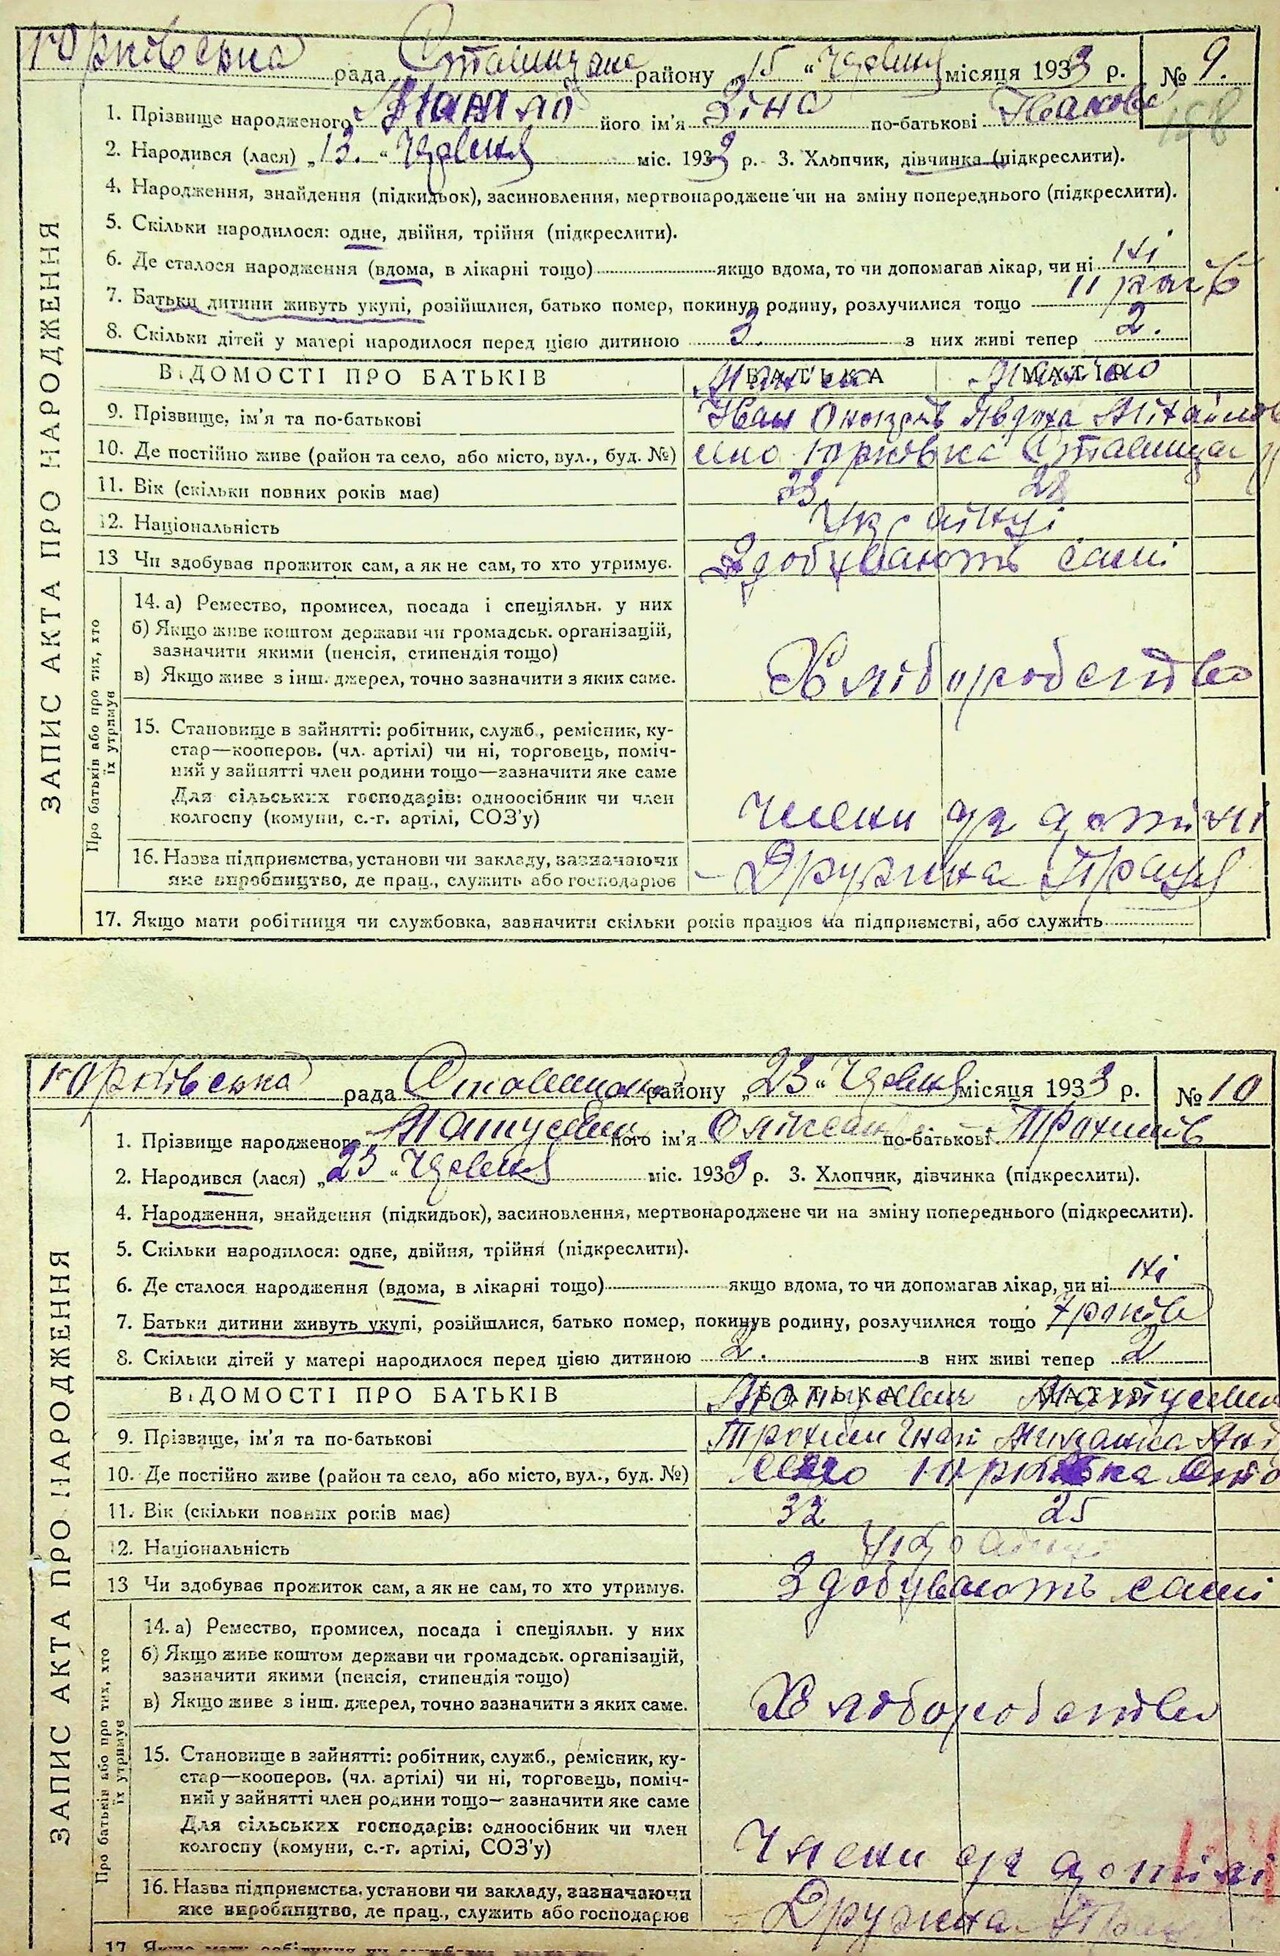 Юрківська рада Ставищанс району „15“ Червня місяця 1933 р. № 9.
158
1. Прізвище народженого його ім'я Зіна по-батькові Іванова
2. Народився (лася) „13.“ Червня міс. 1933 р. 3. Хлопчик, дівчинка (підкреслити).
4. Народження, знайдення (підкидьок), засиновлення, мертвонароджене чи на зміну попереднього (підкреслити).
5. Скільки народилося: одне, двійня, трійня (підкреслити).
6. Де сталося народження (вдома, в лікарні тощо) якщо вдома, то чи допомагав лікар, чи ні ні
7. Батьки дитини живуть укупі, розійшлися, батько помер, покинув родину, розлучилися тощо 11 років
8. Скільки дітей у матері народилося перед цією дитиною 3. з них живі тепер 2.
ВІДОМОСТІ ПРО БАТЬКІВ БАТЬКА МАТІР
9. Прізвище, ім'я та по-батькові Іван Оноприв Явдоха Михайлов
10. Де постійно живе (район та село, або місто, вул., буд. №) село Юрківка Ставищан
11. Вік (скільки повних років має) 33 28
12. Національність Українці
13 Чи здобував прожиток сам, а як не сам, то хто утримує. Здобувають самі
14. а) Ремество, промисел, посада і спеціяльн. у них
б) Якщо живе коштом держави чи громадськ. організацій,
зазначити якими (пенсія, стипендія тощо)
в) Якщо живе з інш. джерел, точно зазначити з яких саме. Хліборобство
15. Становище в зайнятті: робітник, служб., ремісник, ку-
стар—кооперов. (чл. артілі) чи ні, торговець, поміч-
ний у зайнятті член родини тощо—зазначити яке саме
Для сільських господарів: одноосібник чи член
колгоспу (комуни, с.-г. артілі, СОЗ'у) члени
16. Назва підприємства, установи чи закладу, зазначаючи
яке виробництво, де прац., служить або господарює Дружна Праця
17. Якщо мати робітниця чи службовка, зазначити скільки років працює на підприємстві, або служить
ЗАПИС АКТА ПРО НАРОДЖЕННЯ
Про батьків або про тих, хто
їх утримує
Юрківська рада Ставищанс району „23“ Червня місяця 1933 р. № 10
1. Прізвище народженого Матусевич його ім'я Олексан по-батькові Трохимів
2. Народився (лася) „23“ Червня міс. 1933 р. 3. Хлопчик, дівчинка (підкреслити).
4. Народження, знайдення (підкидьок), засиновлення, мертвонароджене чи на зміну попереднього (підкреслити).
5. Скільки народилося: одне, двійня, трійня (підкреслити).
6. Де сталося народження (вдома, в лікарні тощо) якщо вдома, то чи допомагав лікар, чи ні ні
7. Батьки дитини живуть укупі, розійшлися, батько помер, покинув родину, розлучилися тощо 7 років
8. Скільки дітей у матері народилося перед цією дитиною 2. з них живі тепер 2
ВІДОМОСТІ ПРО БАТЬКІВ БАТЬКА МАТІР
9. Прізвище, ім'я та по-батькові Трохим
10. Де постійно живе (район та село, або місто, вул., буд. №) село Юрківка
11. Вік (скільки повних років має) 32 25
12. Національність Українці
13 Чи здобував прожиток сам, а як не сам, то хто утримує. Здобувають самі
14. а) Ремество, промисел, посада і спеціяльн. у них
б) Якщо живе коштом держави чи громадськ. організацій,
зазначити якими (пенсія, стипендія тощо)
в) Якщо живе з інш. джерел, точно зазначити з яких саме. Хліборобство
15. Становище в зайнятті: робітник, служб., ремісник, ку-
стар—кооперов. (чл. артілі) чи ні, торговець, поміч-
ний у зайнятті член родини тощо— зазначити яке саме
Для сільських господарів: одноосібник чи член
колгоспу (комуни, с.-г. артілі, СОЗ'у) Члени
16. Назва підприємства, установи чи закладу, зазначаючи
яке виробництво, де прац., служить або господарює Дружна Праця
ЗАПИС АКТА ПРО НАРОДЖЕННЯ
Про батьків або про тих, хто
їх утримує